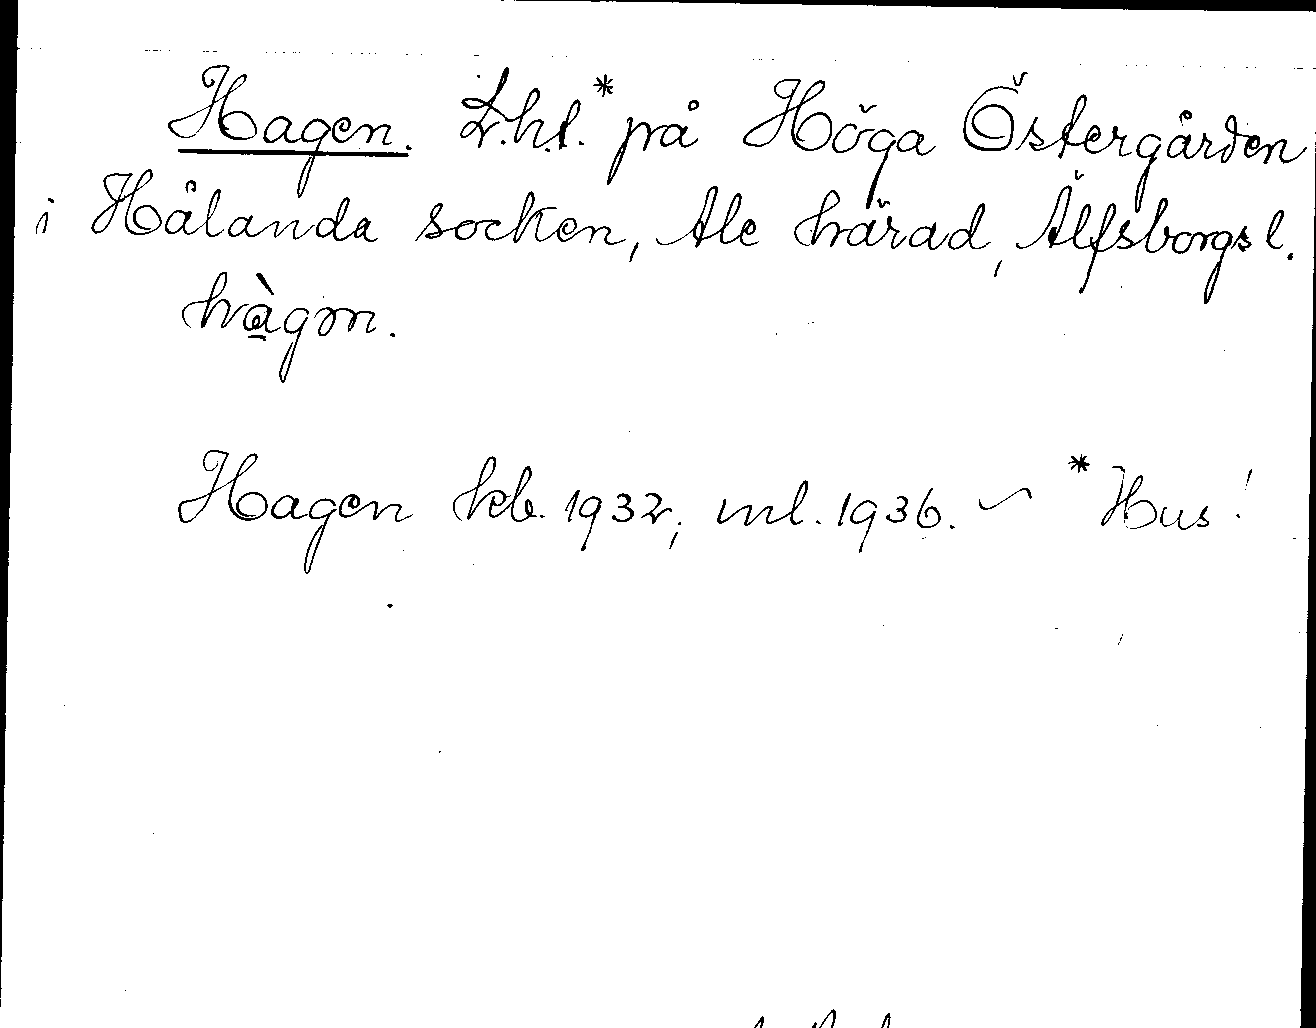 Hagen. L.h.t.* på Höga Östergården
i Hålanda socken, Ale härad, Älfsborgs l.
hàgɷn.
Hagen kb. 1932, ml. 1936. ~ *Hus!